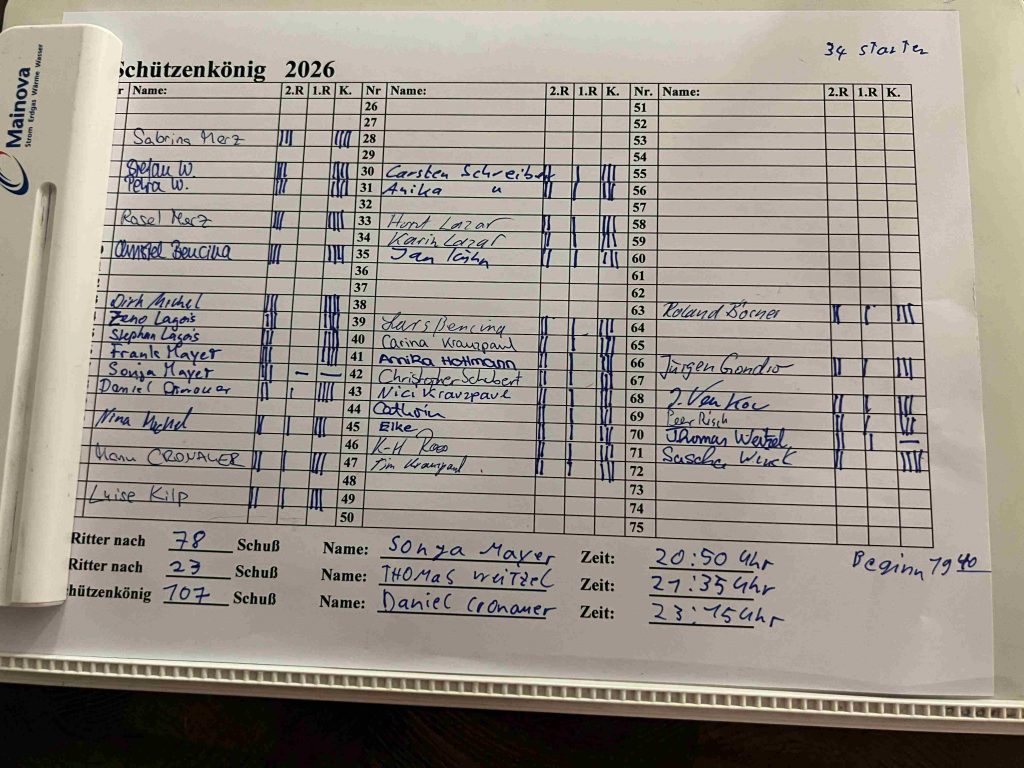 34 starter
Schützenkönig 2026
Mainova
Strom Erdgas Wärme Wasser
r Name: 2.R 1.R K. Nr Name: 2.R 1.R K. Nr. Name: 2.R 1.R K.
26 51
27 52
Sabrina Merz 28 53
29 54
Stefan W. 30 Carsten Schreiber 55
Petra W. 31 Anika " 56
32 57
Rosel Merz 33 Horst Lazar 58
34 Karin Lazar 59
Christel Bencina 35 Jan 60
36 61
37 62
Dirk Michel 38 63 Roland Börner
Zeno Lagois 39 Lars Bencina 64
Stephan Lagois 40 Carina Kranzpaul 65
Frank Mayer 41 Annika Hottmann 66 Jürgen Gondro
Sonja Mayer 42 Christopher Schubert 67
Daniel Cronauer 43 Nici Kranzpaul 68
44 Cathrin 69 Peer Risch
Nina Michel 45 Elke 70 Thomas Weitzel
46 K-H 71 Sascha
Manu CRONAUER 47 Tim Kranzpaul 72
48 73
Luise Kilp 49 74
50 75
Ritter nach 78 Schuß Name: Sonja Mayer Zeit: 20:50 Uhr
Beginn 19 40
Ritter nach 23 Schuß Name: THOMAS WEITZEL Zeit: 21:35 Uhr
hützenkönig 107 Schuß Name: Daniel Cronauer Zeit: 23:15 Uhr